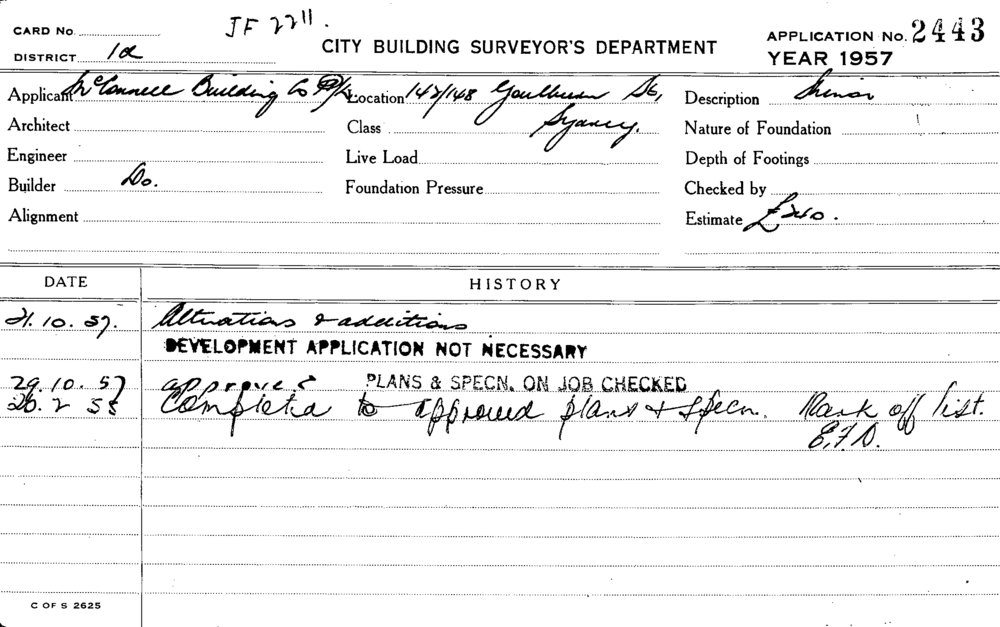 JF 2211.
CARD No.
CITY BUILDING SURVEYOR'S DEPARTMENT
APPLICATION No. 2443
DISTRICT 1a
YEAR 1957
Applicant McConnell Building Co P/L Location 147/148 Goulburn St, Description Minor
Architect Class Sydney. Nature of Foundation
Engineer Live Load Depth of Footings
Builder Do. Foundation Pressure Checked by
Alignment Estimate £240.
DATE HISTORY
21.10.57. Alterations & additions
DEVELOPMENT APPLICATION NOT NECESSARY
29.10.57 approved PLANS & SPECN. ON JOB CHECKED
20.2 58 Completed to approved plans & specn. Mark off list.
E.F.D.
C OF S 2625